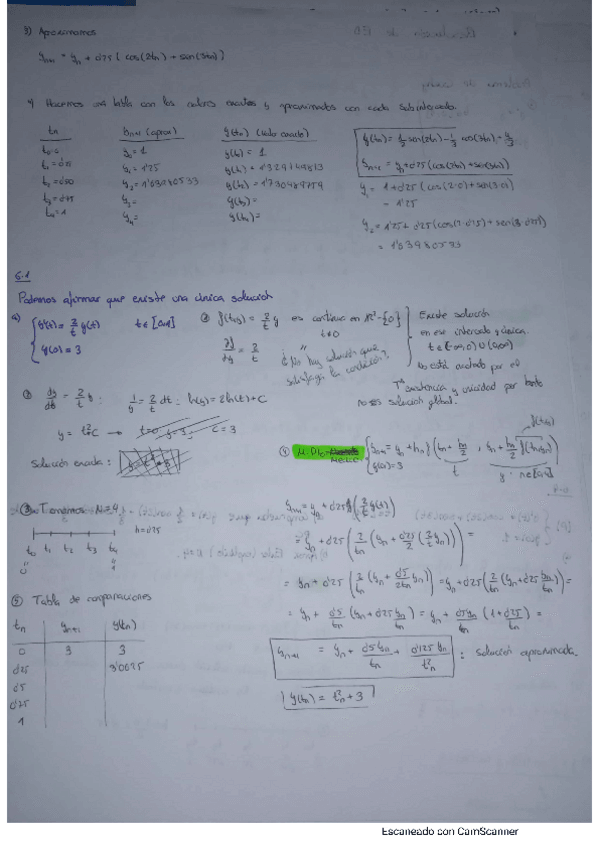 3) Aproximamos
yn+1 = yn + 0'25 ( cos(2tn) + sen(3tn) )
4) Hacemos una tabla con los valores exactos y aproximados con cada subintervalo.
tn   yn+1 (aprox)   y(tn) (valor exacto)
t0=0   y0 = 1   y(t0) = 1
t1=0'25   y1 = 1'25   y(t1) = 1'329749813
t2=0'50   y2 = 1'63980533   y(t2) = 1'730489759
t3=0'75   y3 =   y(t3) =
t4=1   y4 =   y(t4) =
y(tn) = 1/2 sen(2tn) - 1/3 cos(3tn) + 4/3
yn+1 = yn + 0'25 (cos(2tn) + sen(3tn))
y1 = 1 + 0'25 (cos(2·0) + sen(3·0))
= 1'25
y2 = 1'25 + 0'25 (cos(2·0'25) + sen(3·0'25))
= 1'63980533
6.1
Podemos afirmar que existe una única solución
a) { y'(t) = 2/t y(t)   t∈[0,1]
y(0) = 3
f(t,y) = 2/t y es continua en ℝ²-{0}
t≠0
= 2/t
¿No hay solución que satisfaga la condición?
Existe solución
en ese intervalo y única.
t∈(-∞,0)∪(0,∞)
No está acotado por el
Tª existencia y unicidad por tanto
no es solución global.
dy/dt = 2/t y : 1/y = 2/t dt : ln(y) = 2ln(t) + C
C = 3
Solución exacta:
③ Tenemos N=4
h=0'25
t0 t1 t2 t3 t4
0   1
④ M. Pto Medio
{ yn+1 = yn + hn f(tn + hn/2 , yn + hn/2 f(tn,yn))
y(0) = 3
f(t,y)
t
yn+1 = yn + 0'25 f(2/t y(t))
= yn + 0'25 (2/tn (yn + 0'25/2 (2/t yn))) =
= yn + 0'25 (2/tn (yn + 0'5/2tn yn)) = yn + 0'25 (2/tn (yn + 0'25 yn/tn)) =
= yn + 0'5/tn (yn + 0'25 yn/tn) = yn + 0'5yn/tn (1 + 0'25/tn) =
yn+1 = yn + 0'5yn/tn + 0'125 yn/t²n : solución aproximada.
y(tn) = t²n + 3
⑤ Tabla de comparaciones
tn   yn+1   y(tn)
0   3   3
0'25   3'0625
0'5
0'75
1
Escaneado con CamScanner